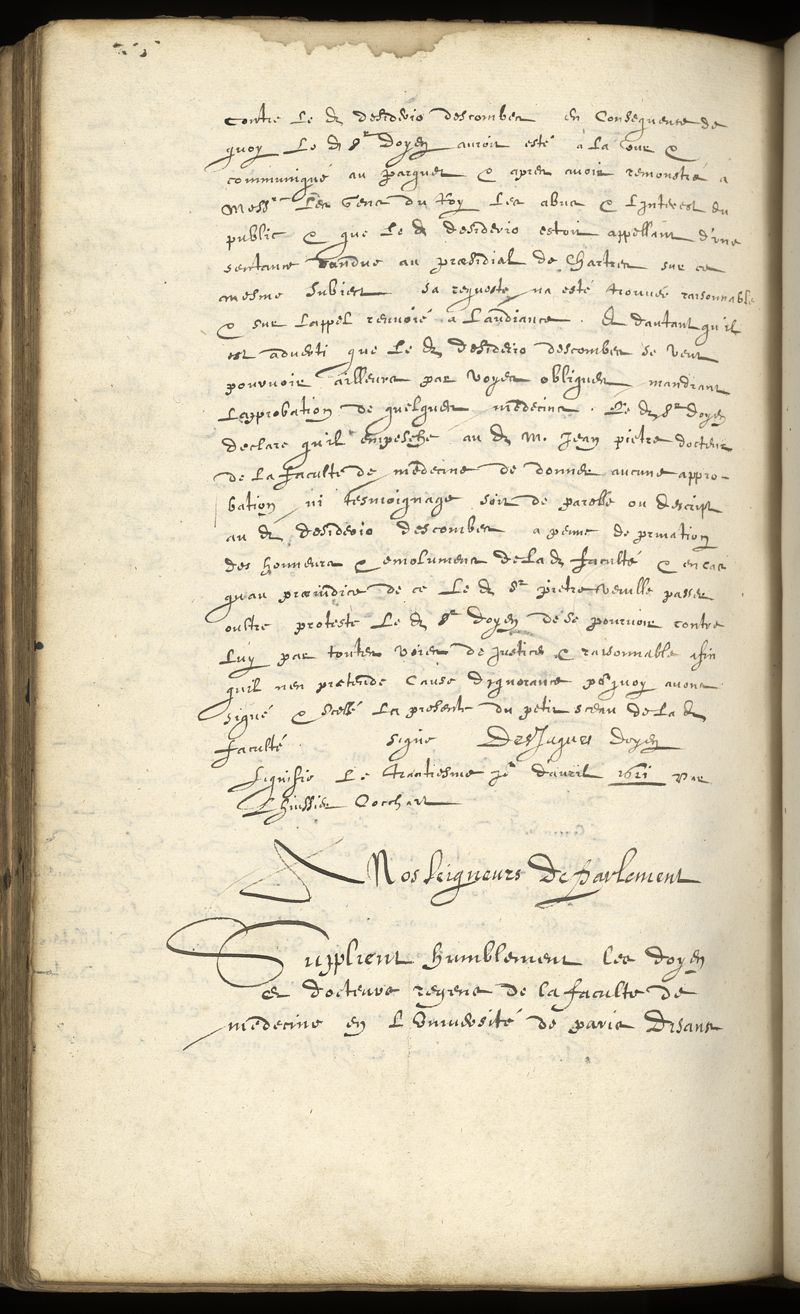 Contre le d. desiderio descombes en Consequence de
quoy Le d. Sr Doyen auroit esté a La Cour &
communiqué au parquet & apres auoir remonstré a
Messrs Les Gens du Roy Les abus & Linterest du
public & que Le d. desiderio estoit appellant d'vne
sentance randue au præsidial de Chartres sur ce
mesme subiect sa requeste na esté trouuée raisonnable
& sur Lappel renuoié a Laudiance. Et dautant qu'il
est aduerti que Le d. desiderio descombes se veut
pouruoir ailleurs par voyes obliques mandiant
Lapprobation de quelques medecins. Le d. Sr Doyen
declare qu'il empesche au d. M. Jean pietre docteur
de La faculté de medecine de donner aucune appro-
bation ni tesmoignage soit de parolle ou descript
au d. desiderio descombes a peine de priuation
des honneurs & emolumens de La d. faculté & en cas
quau præiudice de ce Le d. Sr pietre veuille passer
oultre proteste Le d. Sr Doyen de se pouruoir contre
Luy par toutes voies de justice & raisonnable afin
quil n'en pretende Cause dignorance pr quoy auons
signé & scellé La presente du petit sceau de La d.
faculté. signé Des Jaques doyen
signifié Le trantiesme jr dauril 1621 par
Lhuissier Cocchart
A Nosseigneurs De Parlement
Supplient humblement les doyen
et docteurs regens de la faculté de
medecine en L'Vniuersité de paris Disans